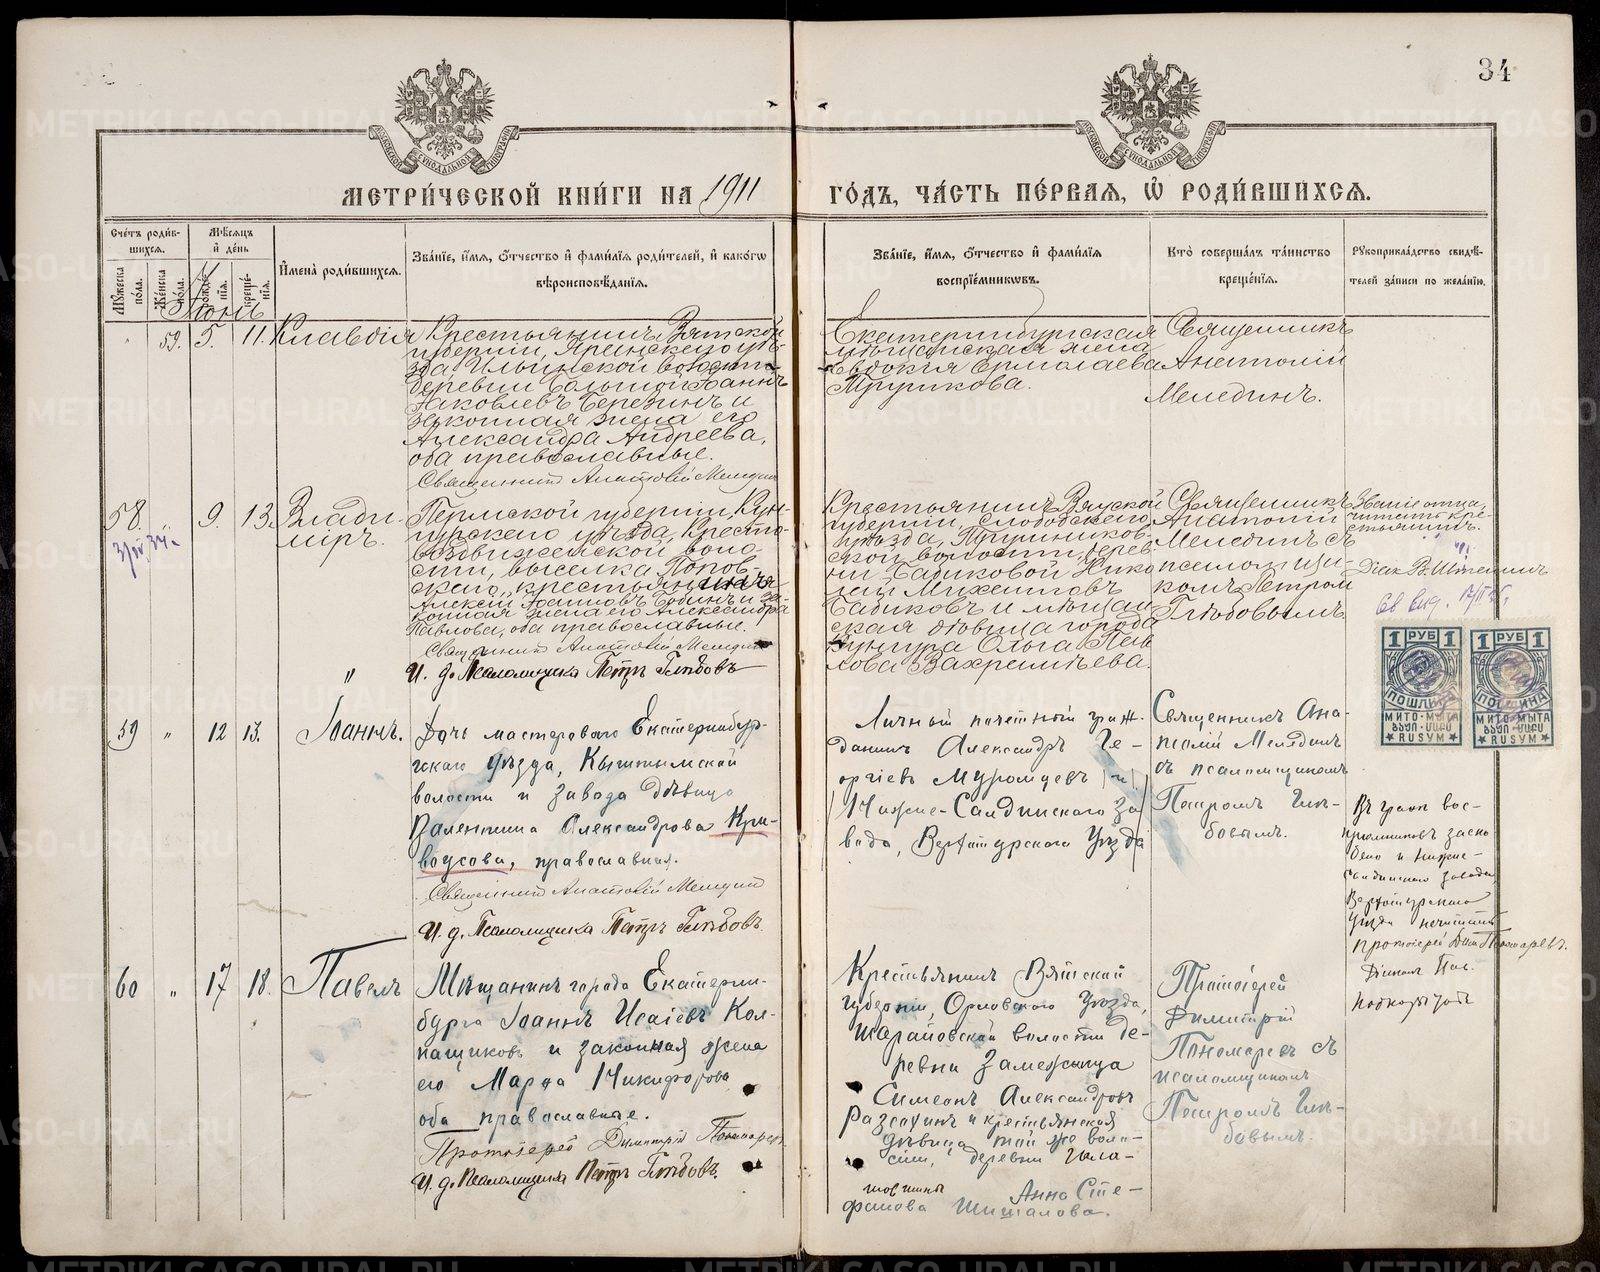 34
МОСКОВСКОЙ СѴНОДАЛЬНОЙ ТИПОГРАФІИ
МОСКОВСКОЙ СѴНОДАЛЬНОЙ ТИПОГРАФІИ
МЕТРИ́ЧЕСКОЙ КНИ́ГИ НА 1911
ГО́ДЪ, ЧА́СТЬ ПЕ́РВАЯ, Ѡ҆ РОДИ́ВШИХСЯ.
Сче́тъ роди́в-
шихся.
Мꙋжеска по́ла.
Же́нска по́ла.
Мѣ́сяцъ
и҆ де́нь
рожде́нїя.
креще́нїя.
И҆мена̀ роди́вшихся.
Зва́нїе, и҆́мя, ѻ҆́тчество и҆ фамилїя роди́телей, и҆ како́гѡ
вѣроисповѣ́данїя.
Зва́нїе, и҆́мя, ѻ҆́тчество и҆ фами́лїя
воспрїе́мникѡвъ.
Кто̀ соверша́лъ та́инство
креще́нїя.
Рꙋкоприкла́дство свидѣ́-
телей за́писи по жела́нїю.
Іюнь
59. 5. 11. Клавдія
Крестьянинъ Вятской
губерніи, Яранскаго уѣз-
зда Ильинской волости
деревни Большой Іоаннъ
Яковлевъ Березинъ и
законная жена его
Александра Андреева,
оба православные.
Священникъ Анатолій Меледин
Екатеринбургская
мѣщанская жена
Евдокія Ермолаева
Трушкова.
Священникъ
Анатолій
Мелединъ.
58. " 9. 13. Влади-
міръ.
Пермской губерніи, Кун-
гурскаго уѣзда, Кресто-
воздвиженской воло-
сти, выселка Попов-
скаго, крестьянинъ
Алексій Іоанновъ и за-
конная жена его Александра
Павлова, оба православные.
Священникъ Анатолій Меледин
И. д. Псаломщика Петръ Глѣбовъ
Крестьянинъ Вятской
губерніи, Слободскаго
уѣзда,
ской волости, дерев-
ни Бабиковой Нико-
лай Михаиловъ
Бабиковъ и мѣщан-
ская дѣвица города
Кунгура Ольга Пав-
лова Вахремѣева.
Священникъ
Анатолій
Мелединъ съ
псаломщи-
комъ Петромъ
Глѣбовымъ
Званіе отца,
читать кре-
стьянинъ.
1 РУБ 1
ПОШЛИНА
МИТО МЫТА
RUSYM
1 РУБ 1
ПОШЛИНА
МИТО МЫТА
RUSYM
59 " 12 13. Іоаннъ.
Дочь мастероваго Екатеринбур-
гскаго уѣзда, Кыштымской
волости и завода дѣвица
Валентина Александрова Кри-
воусова, православная.
Священникъ Анатолій Меледин
И. д. Псаломщика Петръ Глѣбовъ.
Личный почетный граж-
данинъ Александръ Ге-
оргіевъ Муромцевъ и
Нижне-Салдинскаго за-
вода, Верхотурскаго Уѣзда
Священникъ Ана-
толій Мелединъ
съ псаломщикомъ
Петромъ Глѣ-
бовымъ.
Въ графѣ вос-
пріемниковъ
и Нижне-
Салдинскаго завода
Верхотурскаго
Уѣзда
протоіерей Дим. Пономаревъ.
60 " 17 18. Павелъ
Мѣщанинъ города Екатерин-
бурга Іоаннъ Исаіевъ Кол-
пащиковъ и законная жена
его Марѳа Никифорова
оба православные.
Протоіерей Димитрій Пономаревъ
И. д. Псаломщика Петръ Глѣбовъ.
Крестьянинъ Вятской
губерніи, Орловскаго Уѣзда,
волости де-
ревни
Симеонъ Александровъ
и крестьянская
дѣвица той же воло-
сти, деревни
Анна Сте-
фанова Шишалова.
Протоіерей
Димитрій
Пономаревъ съ
псаломщикомъ
Петромъ Глѣ-
бовымъ.
METRIKI.GASO-URAL.RU